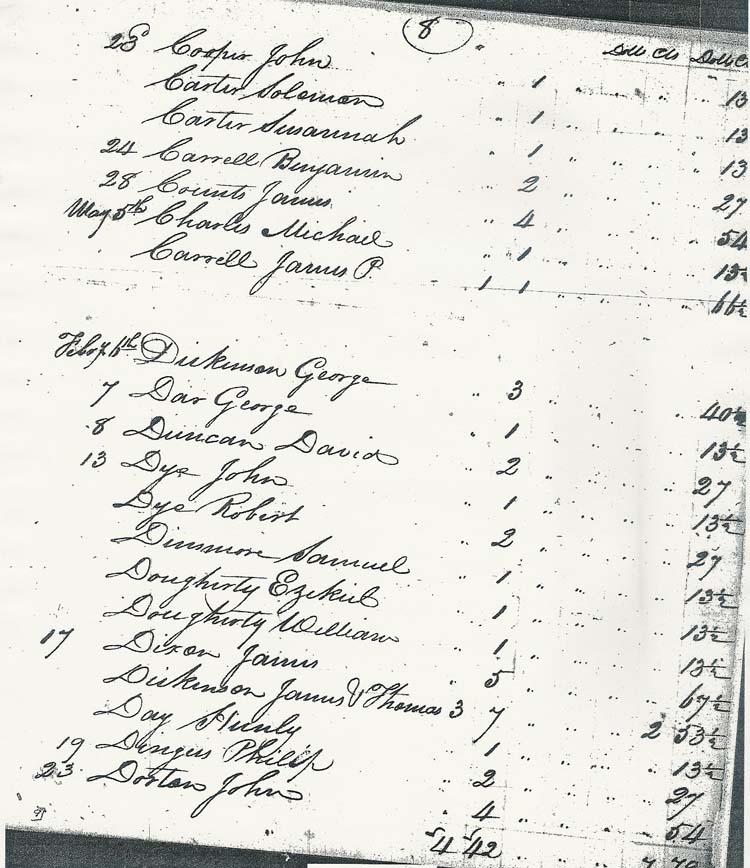 8
Dolls Cts Dolls C
23 Cooper John " 1 " " " " 13
Carter Solomon " 1 " " " " 13
Carter Susannah " 1 " " " " 13
24 Carrell Benjamin " 2 " " " " 27
28 Counts James " 4 " " " " 54
May 5th Charles Michael " 1 " " " " 13½
Carrell James P. 1 1 " " " " 66½
Feby 6th Dickinson George " 3 " " " " 40½
7 Dar George " 1 " " " " 13½
8 Duncan David " 2 " " " " 27
13 Dye John " 1 " " " " 13½
Dye Robert " 2 " " " " 27
Dinsmore Samuel " 1 " " " " 13½
Dougherty Ezekiel " 1 " " " " 13½
Dougherty William " 1 " " " " 13½
17 Dixon James " 5 " " " " 67½
Dickinson James & Thomas 3 7 " " " 2 53½
Day Hunly " 1 " " " " 13½
19 Dingus Philip " 2 " " " " 27
23 Dorton John " 4 " " " " 54
54 42